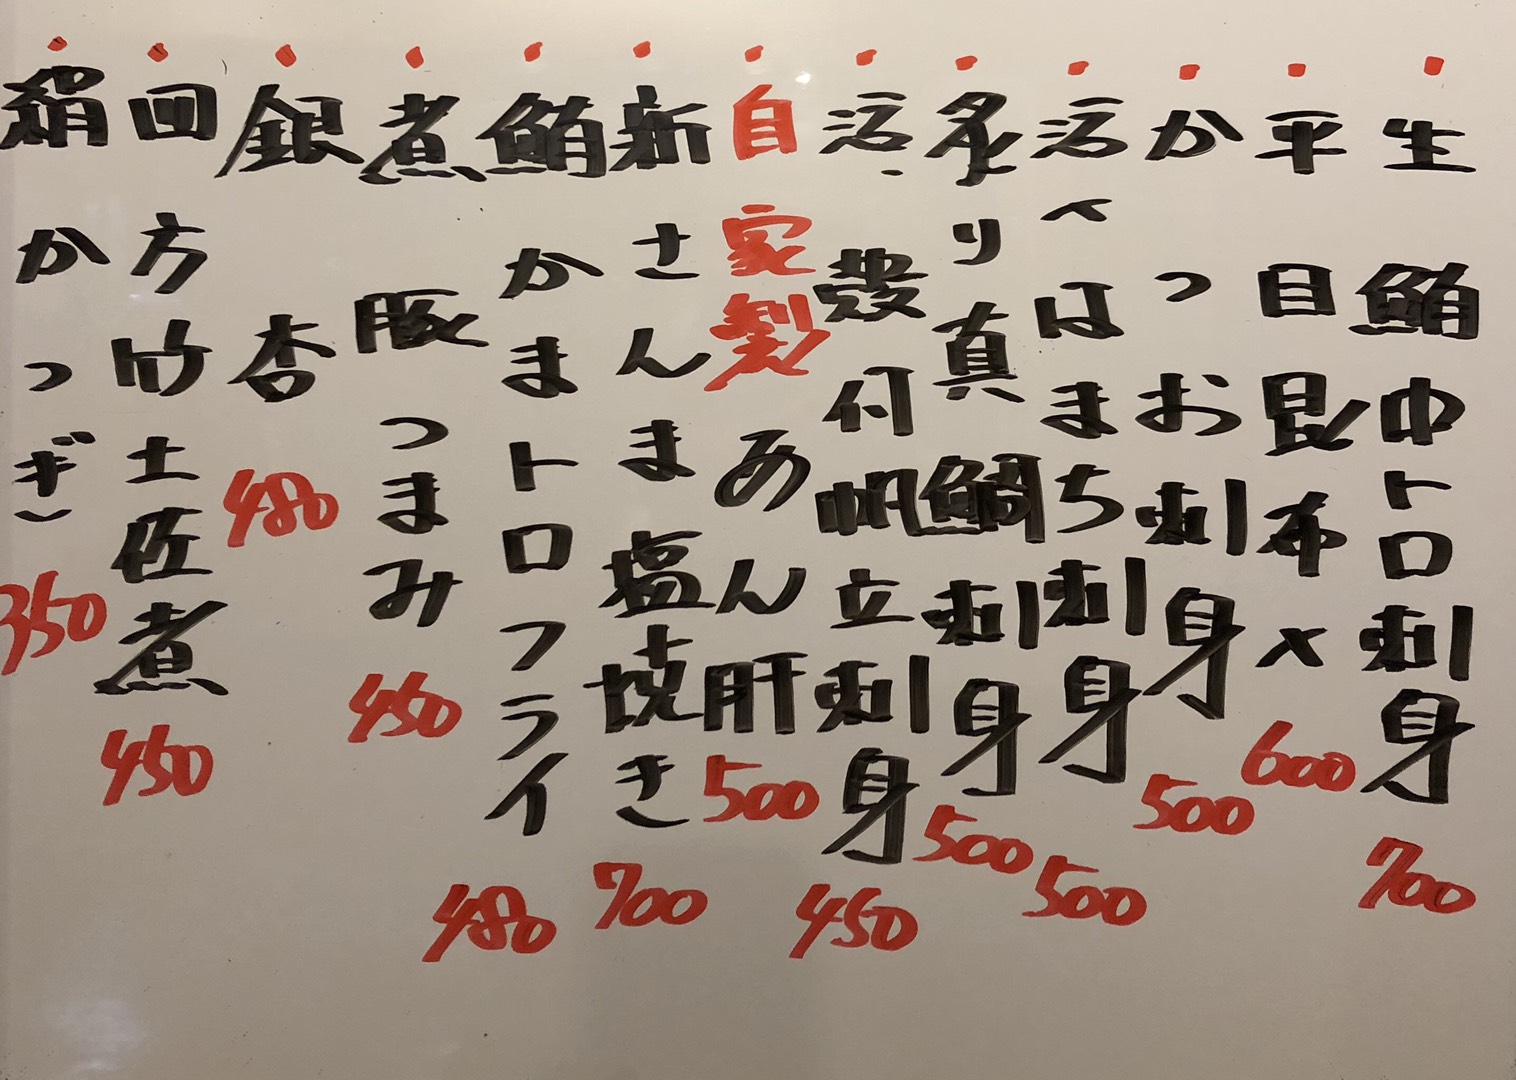 生鮪中トロ刺身 700
平目昆布〆 600
かつお刺身 500
活〆はまち刺身 500
炙り真鯛刺身 500
活殻付帆立刺身 450
自家製あん肝 500
新さんま塩焼き 700
鮪かまトロフライ 480
煮豚つまみ 450
銀杏 480
回方竹土佐煮 450
絹かつぎ 350